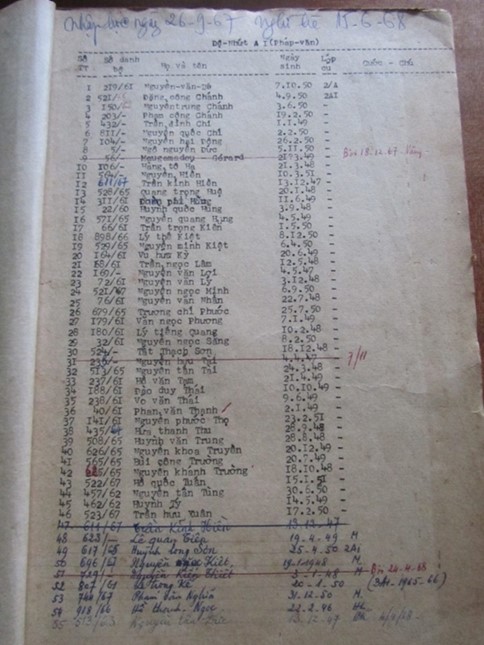 Nhập học ngày 26-9-67 Nghỉ hè 15-6-68
Đệ-Nhứt A I(Pháp-văn)
Số TT Số danh bộ Họ và tên Ngày sinh Lớp cũ Cước - Chú
1 219/61 Nguyễn-văn-Cò 7.10.50 2/A
2 521/ Đặng công Chánh 4.9.50 2AI
3 150/ Nguyễn trung Chánh 3.6.50 -
4 203/- Phạm công Chánh 19.2.50 -
5 432/- Trần đình Chi 1.1.49 -
6 811/- Nguyễn quốc Chi 2.2.50 -
7 104/- Nguyễn hai Dộng 26.2.50 -
8 5/- Ngô nguyên Đức 5.11.50 -
9 56/- Gérard 21.3.49 - Bôi 18.12.67 -
10 106/- Hàng tô Ha 21.2.48 -
11 504/- Nguyễn Hiền 10.3.51 -
12 611/67 Trần kinh Hiển 13.12.47 -
13 528/65 Quang trọng Huệ 20.1.48 -
14 311/61 phi Hùng 11.6.49 -
15 22/60 Huỳnh quốc Hùng 3.9.48 -
16 571/65 Nguyễn quang Hưng 4.5.49 -
17 66/61 Trần trọng Kiên 1.5.50 -
18 898/66 Lý thế Kiệt 8.12.50 -
19 529/65 Nguyễn minh Kiệt 6.4.50 -
20 164/61 Vu huu Kỳ 20.6.49 -
21 168/61 Trần ngọc Lâm 21.2.48 -
22 169/- Nguyễn văn Lợi 4.5.47 -
23 72/61 Nguyễn văn Lý 3.12.48 -
24 521/67 Nguyễn ngọc Minh 6.9.50 -
25 76/61 Nguyễn văn Nhân 22.7.48 -
26 679/65 Trương chí Phước 25.7.50 -
27 179/61 Văn ngọc Phương 7.1.49 -
28 180/61 Lý tiếng Quang 10.2.48 -
29 32/61 Nguyễn ngọc Sáng 8.2.50 -
30 524/- Tất Thạch Sơn 18.12.48 -
31 236/- Nguyễn hữu Tài 4.4.47 - 7/11
32 513/65 Nguyễn tấn Tài 24.3.48 -
33 237/61 Hồ văn Tam 21.4.49 -
34 188/61 Đào duy Thái 10.10.49 -
35 238/61 Võ văn Thái 9.6.49 -
36 40/61 Phan văn Thạnh 2.1.49 -
37 141/61 Nguyễn phước Thọ 23.2.51 -
38 435/ Hứa thanh Thu 28.9.48 -
39 508/65 Huỳnh văn Trung 28.8.48 -
40 626/65 Nguyễn khoa Truyền 20.12.49 -
41 565/65 Bùi công Trường 20.7.49 -
42 /65 Nguyễn khanh Trường 18.10.48 -
43 522/67 Hồ quốc Tuấn 15.1.51 -
44 457/62 Nguyễn tấn Tùng 30.6.50 -
45 462/62 Huỳnh Lý 14.5.49 -
46 523/67 Trần hưu Xuân 17.2.50 -
47 611/67 Trần Kinh Hiển 13.12.47 -
48 623/- Lê quay Tiếp 19-4-49 M
49 617/65 Huỳnh long Sơn 25-4.50 2A1
50 696/67 Nguyễn Kiết 19-1-1948 M
51 729/- Nguyễn Kiệt Thiết 3-1-48 M Bôi 24-4-68
52 807/61 Vũ trọng Kế 20-1-50 (3A1-1965-66)
53 740/67 Phan Văn Nghĩa 31-12-50 M
54 918/66 Võ thanh Ngọc 22-2-46
55 513/63 Nguyễn 13-12-47